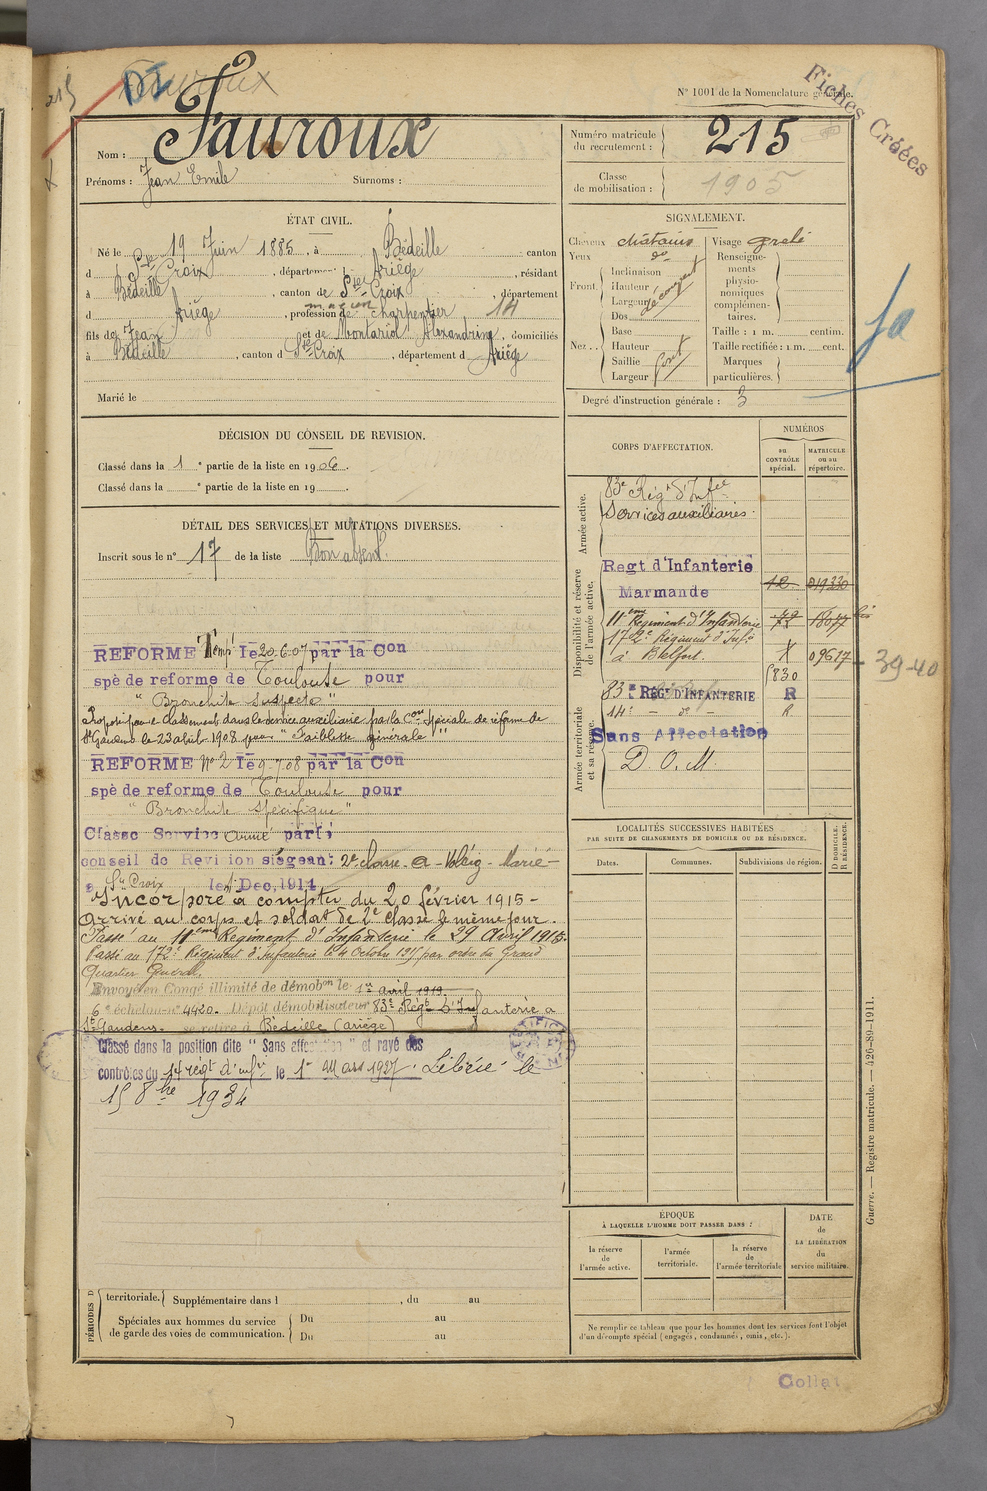 215
Fauroux
N° 1001 de la Nomenclature générale.
Fiches Créées
Nom : Fauroux
Prénoms : Jean Emile Surnoms :
Numéro matricule du recrutement : 215
Classe de mobilisation : 1905
ÉTAT CIVIL.
Né le 19 Juin 1885, à Bédeille canton
d Ste Croix, département Ariège, résidant
à Bédeille, canton de Ste Croix, département
d Ariège, profession de charpentier 14
maçon
fils de Jean et de Montariol Alexandrine, domiciliés
à Bédeille, canton d Ste Croix, département d Ariège
Marié le
SIGNALEMENT.
Cheveux châtains
Yeux do
Front. Inclinaison
Hauteur
Largeur
Dos
découvert
Nez .. Base
Hauteur
Saillie
Largeur
fort
Visage grêlé
Renseignements physionomiques complémentaires.
Taille : 1 m. centim.
Taille rectifiée : 1 m. cent.
Marques particulières.
Degré d'instruction générale : 3
DÉCISION DU CONSEIL DE REVISION.
Classé dans la 1e partie de la liste en 1906.
Classé dans la e partie de la liste en 19 .
DÉTAIL DES SERVICES ET MUTATIONS DIVERSES.
Inscrit sous le n° 17 de la liste Bon absent.
REFORME Temp Ie 20.6.07 par la Con
spè de reforme de Toulouse pour
" Bronchite suspecte "
Proposé pour le classement dans le service auxiliaire par la Con spéciale de réforme de
St Gaudens le 23 abril 1908 pour " Faiblesse générale "
REFORME N° 2 Ie 9-7.08 par la Con
spè de reforme de Toulouse pour
" Bronchite spécifique "
Classe Service armé parti
conseil de Revision siégeant 2e classe - Marié -
a Ste Croix le Dec. 1914
Incorporé à compter du 20 février 1915 -
arrivé au corps et soldat de 2e classe le même jour.
Passé au 11eme Régiment d'Infanterie le 29 Avril 1915.
Passé au 172e Régiment d'Infanterie le 4 Octobre 1917 par ordre du Grand
Quartier Général.
Envoyé en Congé illimité de démobon le 1er avril 1919
6e échelon n° 4420. Dépôt démobilisateur 83e Régt d'Infanterie à
St Gaudens. se retire à Bédeille (ariège)
Classé dans la position dite "Sans affectation" et rayé des
contrôles du 14e régt d'infie le 1er Mars 1927. Libéré le
15 8bre 1934
CORPS D'AFFECTATION.
NUMÉROS
au CONTRÔLE spécial.
MATRICULE ou au répertoire.
Armée active.
83e Régt d'Infie
Services auxiliaires.
Disponibilité et réserve de l'armée active.
Regt d'Infanterie
Marmande
11eme Régiment d'Infanterie
172e Régiment d'Infie
à Belfort. X 09617
39-40
Armée territoriale et sa réserve.
83e REGt D'INFANTERIE 5830 R
14e - do - R
Sans Affectation
D. O. M.
LOCALITÉS SUCCESSIVES HABITÉES
PAR SUITE DE CHANGEMENTS DE DOMICILE OU DE RÉSIDENCE.
Dates.
Communes.
Subdivisions de région.
D DOMICILE.
R RÉSIDENCE.
ÉPOQUE
À LAQUELLE L'HOMME DOIT PASSER DANS :
la réserve de l'armée active.
l'armée territoriale.
la réserve de l'armée territoriale
DATE de LA LIBÉRATION du service militaire.
Ne remplir ce tableau que pour les hommes dont les services font l'objet
d'un décompte spécial (engagés, condamnés, omis, etc.).
PÉRIODES D
territoriale. Supplémentaire dans l , du au
Spéciales aux hommes du service de garde des voies de communication. Du au
Du au
Guerre. — Registre matricule. — 426-89-1911.